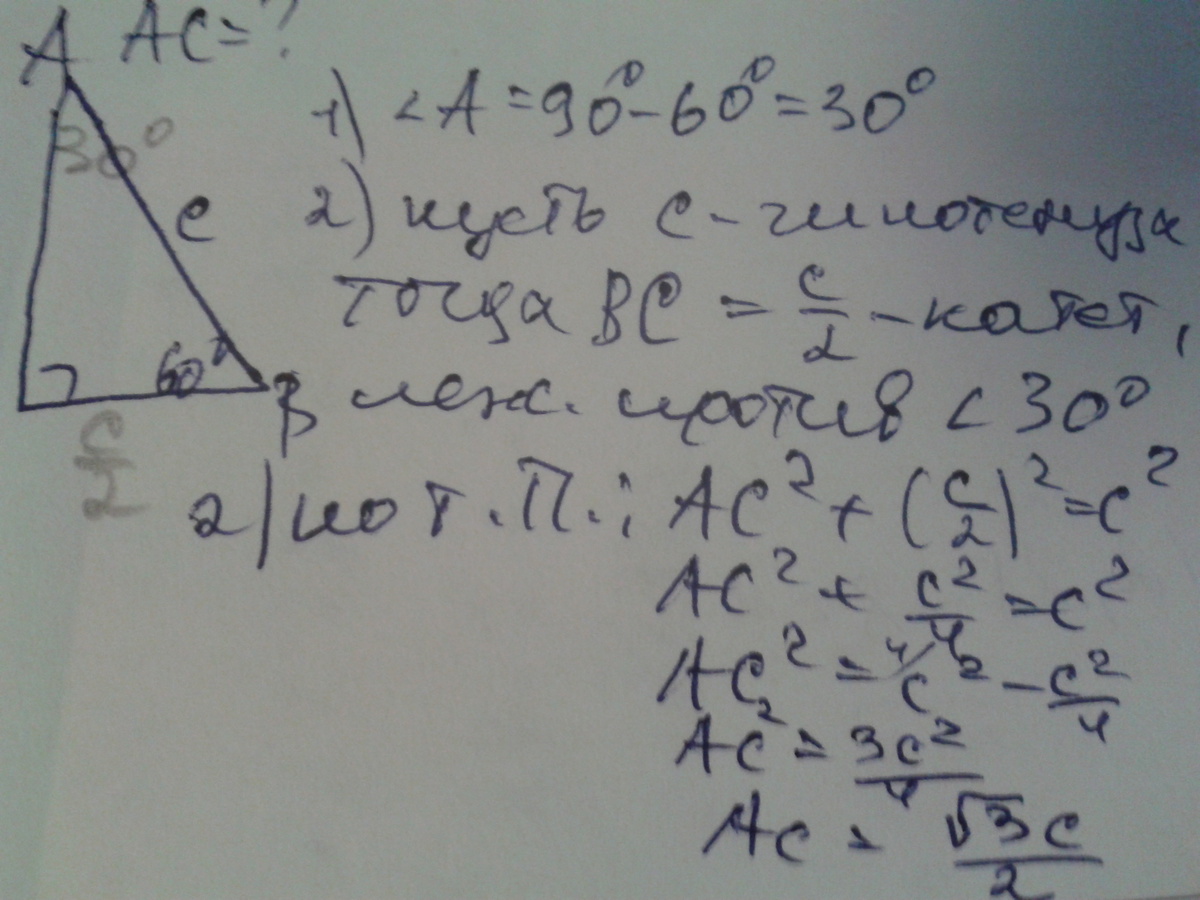 A AC = ?
30°
c
60°
B
c/2
1) <A = 90° - 60° = 30°
2) пусть c - гипотенуза
тогда BC = c/2 - катет,
леж. против < 30°
2) по т. П.: AC² + (c/2)² = c²
AC² + c²/4 = c²
AC² = 4/c² - c²/4
AC² = 3c²/4
AC = √3c/2